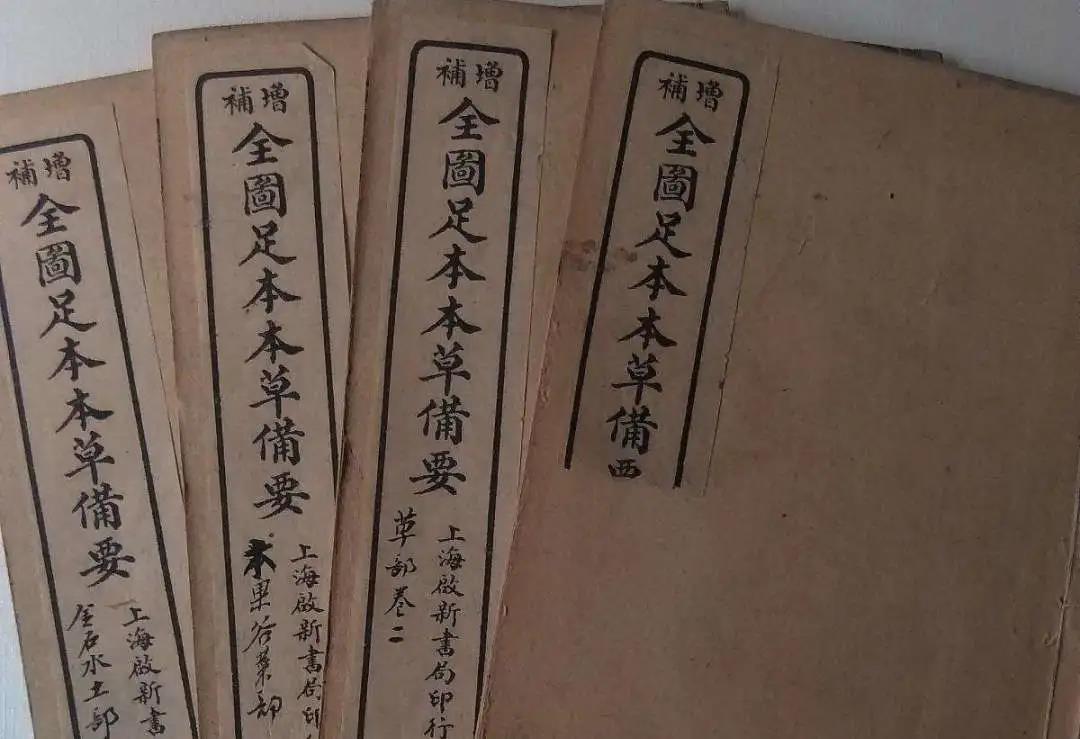 增補
全圖足本本草備
增補
全圖足本本草備要
上海啟新書局印行
草部卷二
增補
全圖足本本草備要
上海啟新書局印
木果谷菜部
增補
全圖足本本草備要
上海啟新書
金石水土部